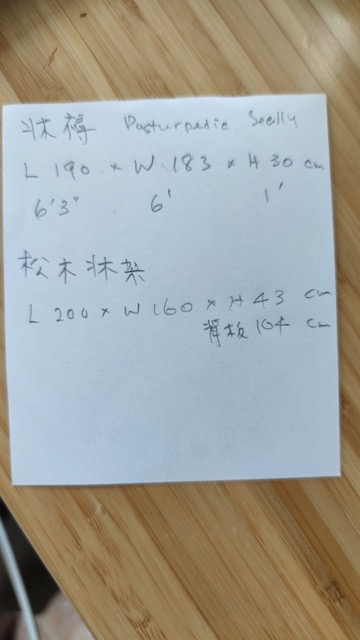 床褥 Posturpedic Seally
L 190 × W 183 × H 30 cm
6'3" 6' 1'
松木床架
L 200 × W 160 × H 43 cm
背板 104 cm